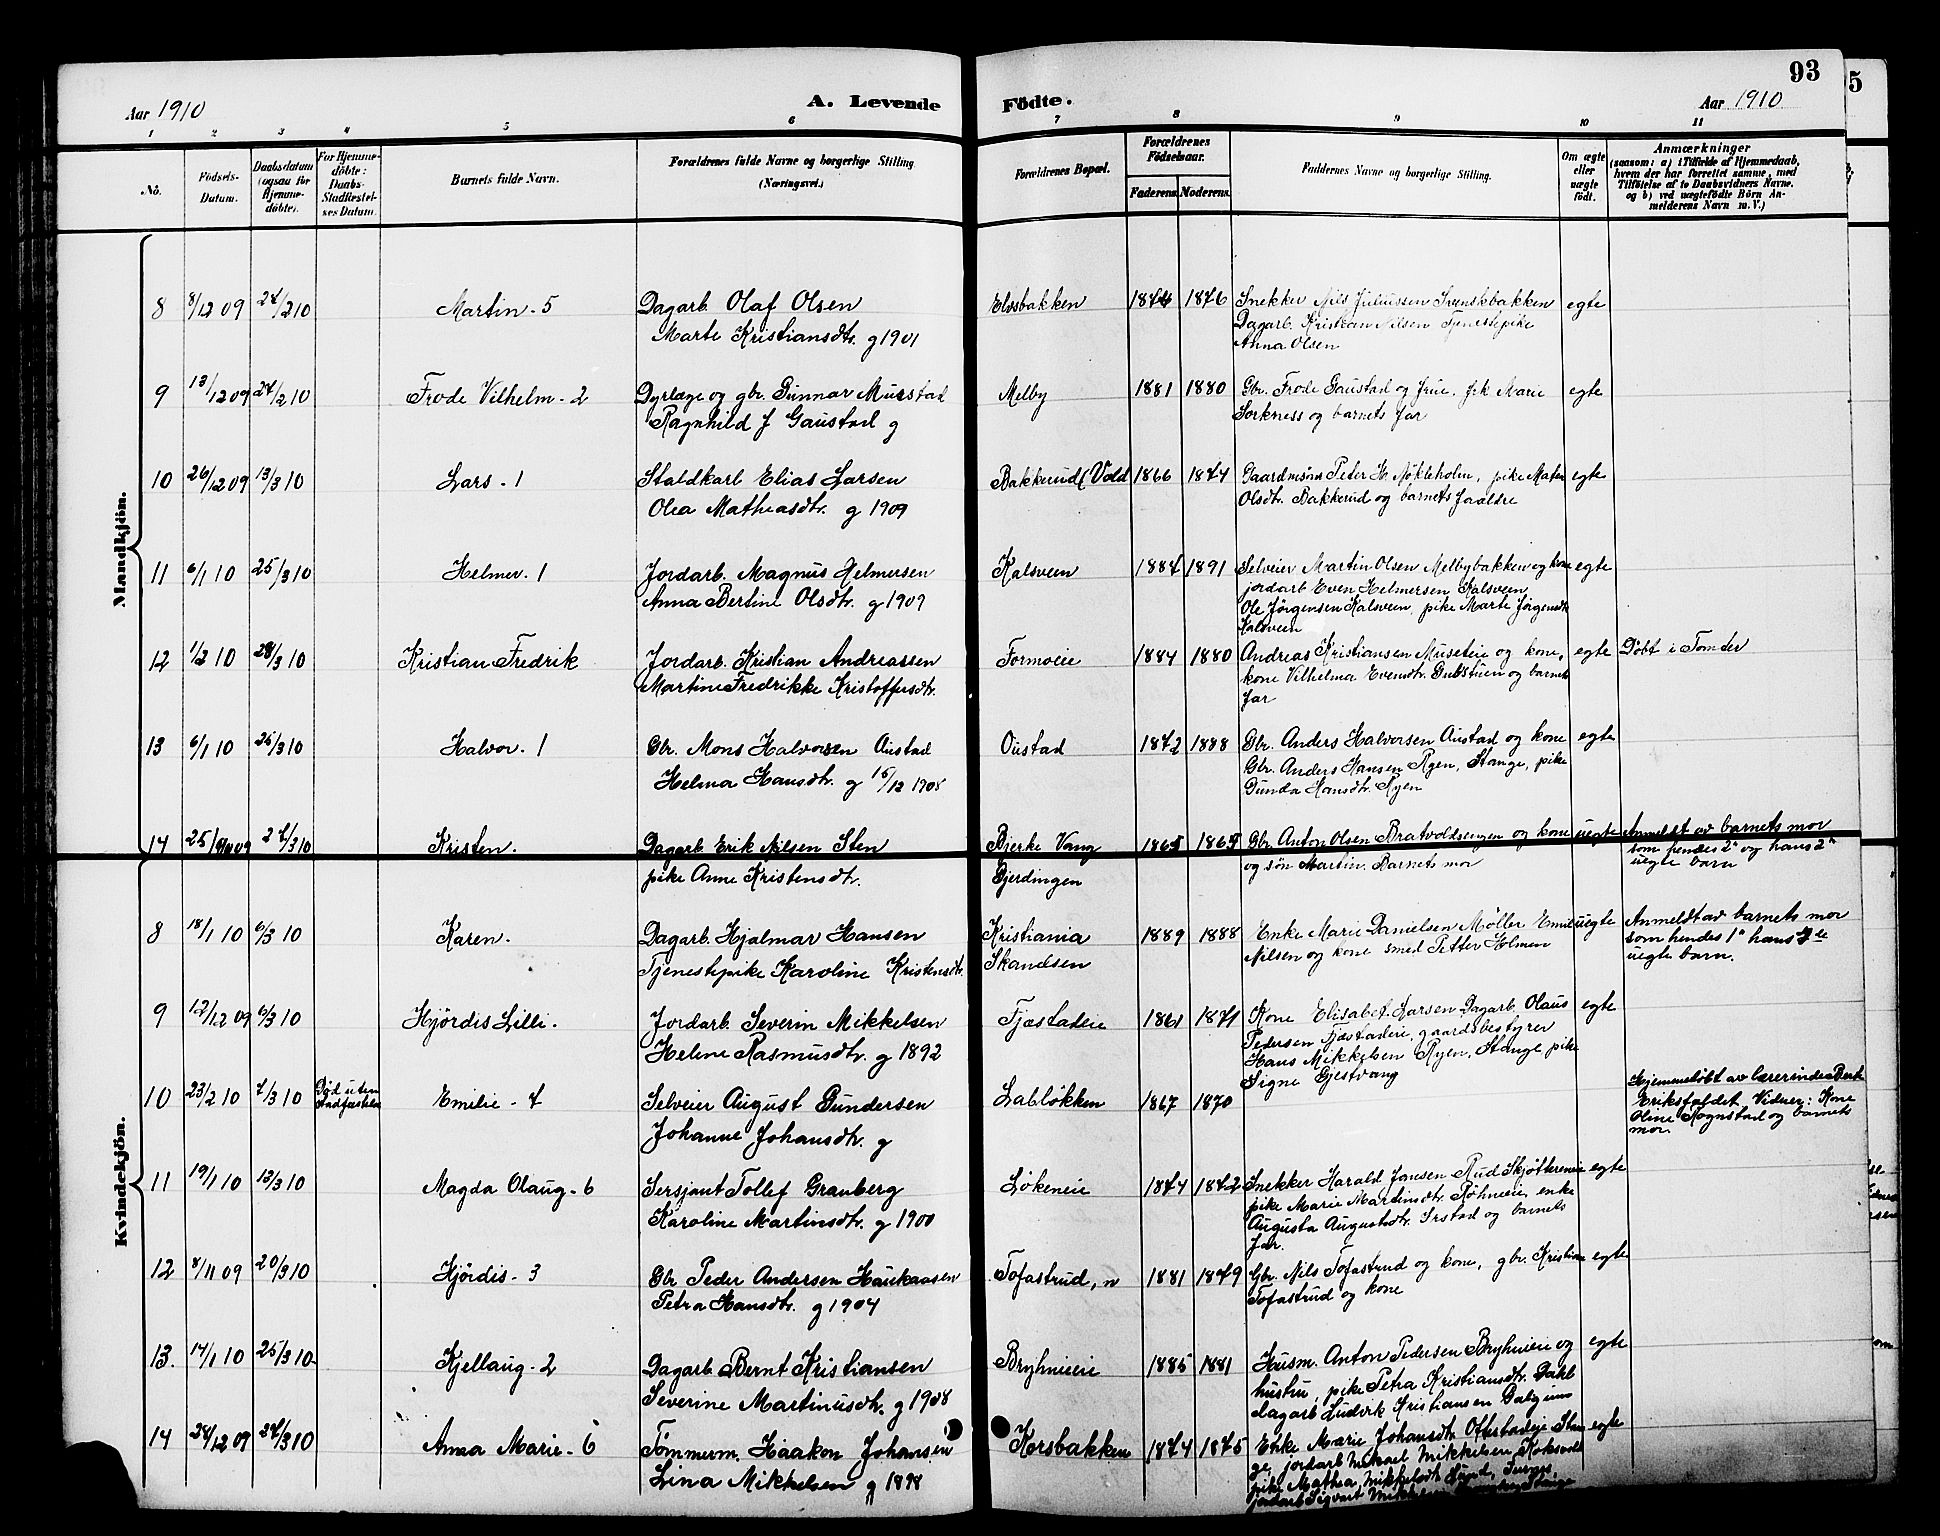 93
5
Aar 1910
A. Levende Födte.
Aar 1910
1 2 3 4 5 6 7 8 9 10 11
No.
Födsels-Datum.
Daabsdatum (ogsaa for Hjemme-döbte).
For Hjemme-döbte: Daabs-Stadfæstel-ses Datum.
Barnets fulde Navn.
Forældrenes fulde Navne og borgerlige Stilling. (Næringsvei.)
Forældrenes Bopæl.
Forældrenes Födselsaar.
Faderens. Moderens.
Faddernes Navne og borgerlige Stilling.
Om ægte eller uægte födt.
Anmærkninger
(saasom: a) i Tilfælde af Hjemmedaab, hvem der har forrettet samme, med Tilföielse af to Daabsvidners Navne, og b) ved uægtefödte Börn An-melderens Navn m. V.)
Mandkjön.
8 8/12 09 24/2 10 Martin - 5 Dagarb. Olaf Olsen Elvsbakken 1874 1876 Snekker Nils Juliussen Svenskbakken egte
Marte Kristiansdtr. g 1901 Dagarb. Kristian Nilsen Tjenestepike
Anna Olsen
9 13/12 09 24/2 10 Frode Vilhelm - 2 Dyrlæge og gbr. Gunnar Musstad Melby 1881 1880 Gbr. Frode Gaustad og frue, frk Marie egte
Ragnhild J Gaustad g Sorkness og barnets far
10 26/12 09 13/3 10 Lars - 1 Staldkarl Elias Larsen Bakkerud (Vold 1866 1874 Gaardmsøn Peter H. Nøkleholm, pike Mater egte
Olea Mathiasdtr. g 1909 Olsdtr. Bakkerud og barnets foreldre
11 6/1 10 25/3 10 Helmer - 1 Jordarb. Magnus Helmersen Kalsveen 1884 1891 Selveier Martin Olsen Melbybakken og kone egte
Anna Bertine Olsdtr. g 1909 jordarb Even Helmersen Kalsveen
Ole Jørgensen Kalsveen, pike Marte Jørgensdtr
Kalsveen
12 1/2 10 28/3 10 Kristian Fredrik Jordarb. Kristian Andreassen Formoeie 1884 1880 Andreas Kristiansen Museteie og kone, egte Døbt i Tomter
Martine Fredrikke Kristoffersdtr. kone Vilhelma Evensdtr. Gubstuen og barnets
far
13 6/1 10 25/3 10 Halvor - 1 Gbr. Mons Halvorsen Austad Oustad 1872 1888 Gbr. Anders Halvorsen Austad og kone egte
Helma Hansdtr. g 15/12 1908 Gbr. Anders Hansen Ryen, Stange, pike
Gunda Hansdtr. Ryen
14 25/10 09 24/3 10 Kristen. Dagarb. Erik Nilsen Sten Bjerke Vang 1865 1865 Gbr. Anton Olsen Bratvoldsengen og kone uegte Anmeldt av barnets mor
pike Anne Kristensdtr. Gjerdingen og søn Martin. Barnets mor som hendes 2° og hans 2°
uegte barn
Kvindekjön.
8 18/1 10 6/3 10 Karen. Dagarb. Hjalmar Hansen Kristiania 1889 1888 Enke Marie Danielsen Møller Emil uegte Anmeldt av barnets mor
Tjenestepike Karoline Kristensdtr. Skandsen Nilsen og kone smed Petter Holmen som hendes 1° hans
uegte barn.
9 12/12 09 6/3 10 Hjördis Lilli. Jordarb. Severin Mikkelsen Fjæstadeie 1861 1871 Kone Elisabet Larsen Dagarb. Olaus egte
Helene Rasmusdtr. g 1892 Pedersen Fjæstadeie, gaardsbestyrer
Hans Mikkelsen Ryen, Stange pike
Signe Gjestvang
10 23/2 10 7/3 10 Død uten stadfæstelse Emilie - 4 Selveier August Gundersen Labløkken 1867 1870 Hjemmedøbt av lærerinde Berte
Johanne Johansdtr. g Eriksfaldet Vidner: Kone
Oline Rognstad og barnets
mor.
11 19/1 10 13/3 10 Magda Olaug - 6 Sersjant Tollef Granberg Løkeneie 1874 1872 Snekker Harald Jansen Rud Skjøttereneie egte
Karoline Martinsdtr. g 1900 pike Marie Martinsdtr. Røhneeie, enke
Augusta Augustsdtr. Irstad og barnets
far.
12 8/11 09 20/3 10 Hjördis - 3 Gbr Peder Andersen Haukaasen Tofastrud, n 1881 1879 Gbr. Nils Tofastrud og kone, gbr. Kristian egte
Petra Hansdtr. g 1904 Tofastrud og kone
13. 14/1 10 25/3 10 Kjellaug - 2 Dagarb. Bernt Kristiansen Bryhnieie 1885 1881 Husm. Anton Pedersen Bryhnieie og egte
Severine Martinusdtr. g 1908 hustru, pike Petra Kristiansdtr. Dahl
dagarb Ludvik Kristiansen
14 24/12 09 24/3 10 Anna Marie - 6 Tömmerm. Haakon Johansen Korsbakken 1874 1875 Enke Marie Johansdtr Oftestadeje Stan egte
Lina Mikkelsen g 1898 ge, jordarb Mikael Mikkelsen
pike Mathea Mikkelsdtr